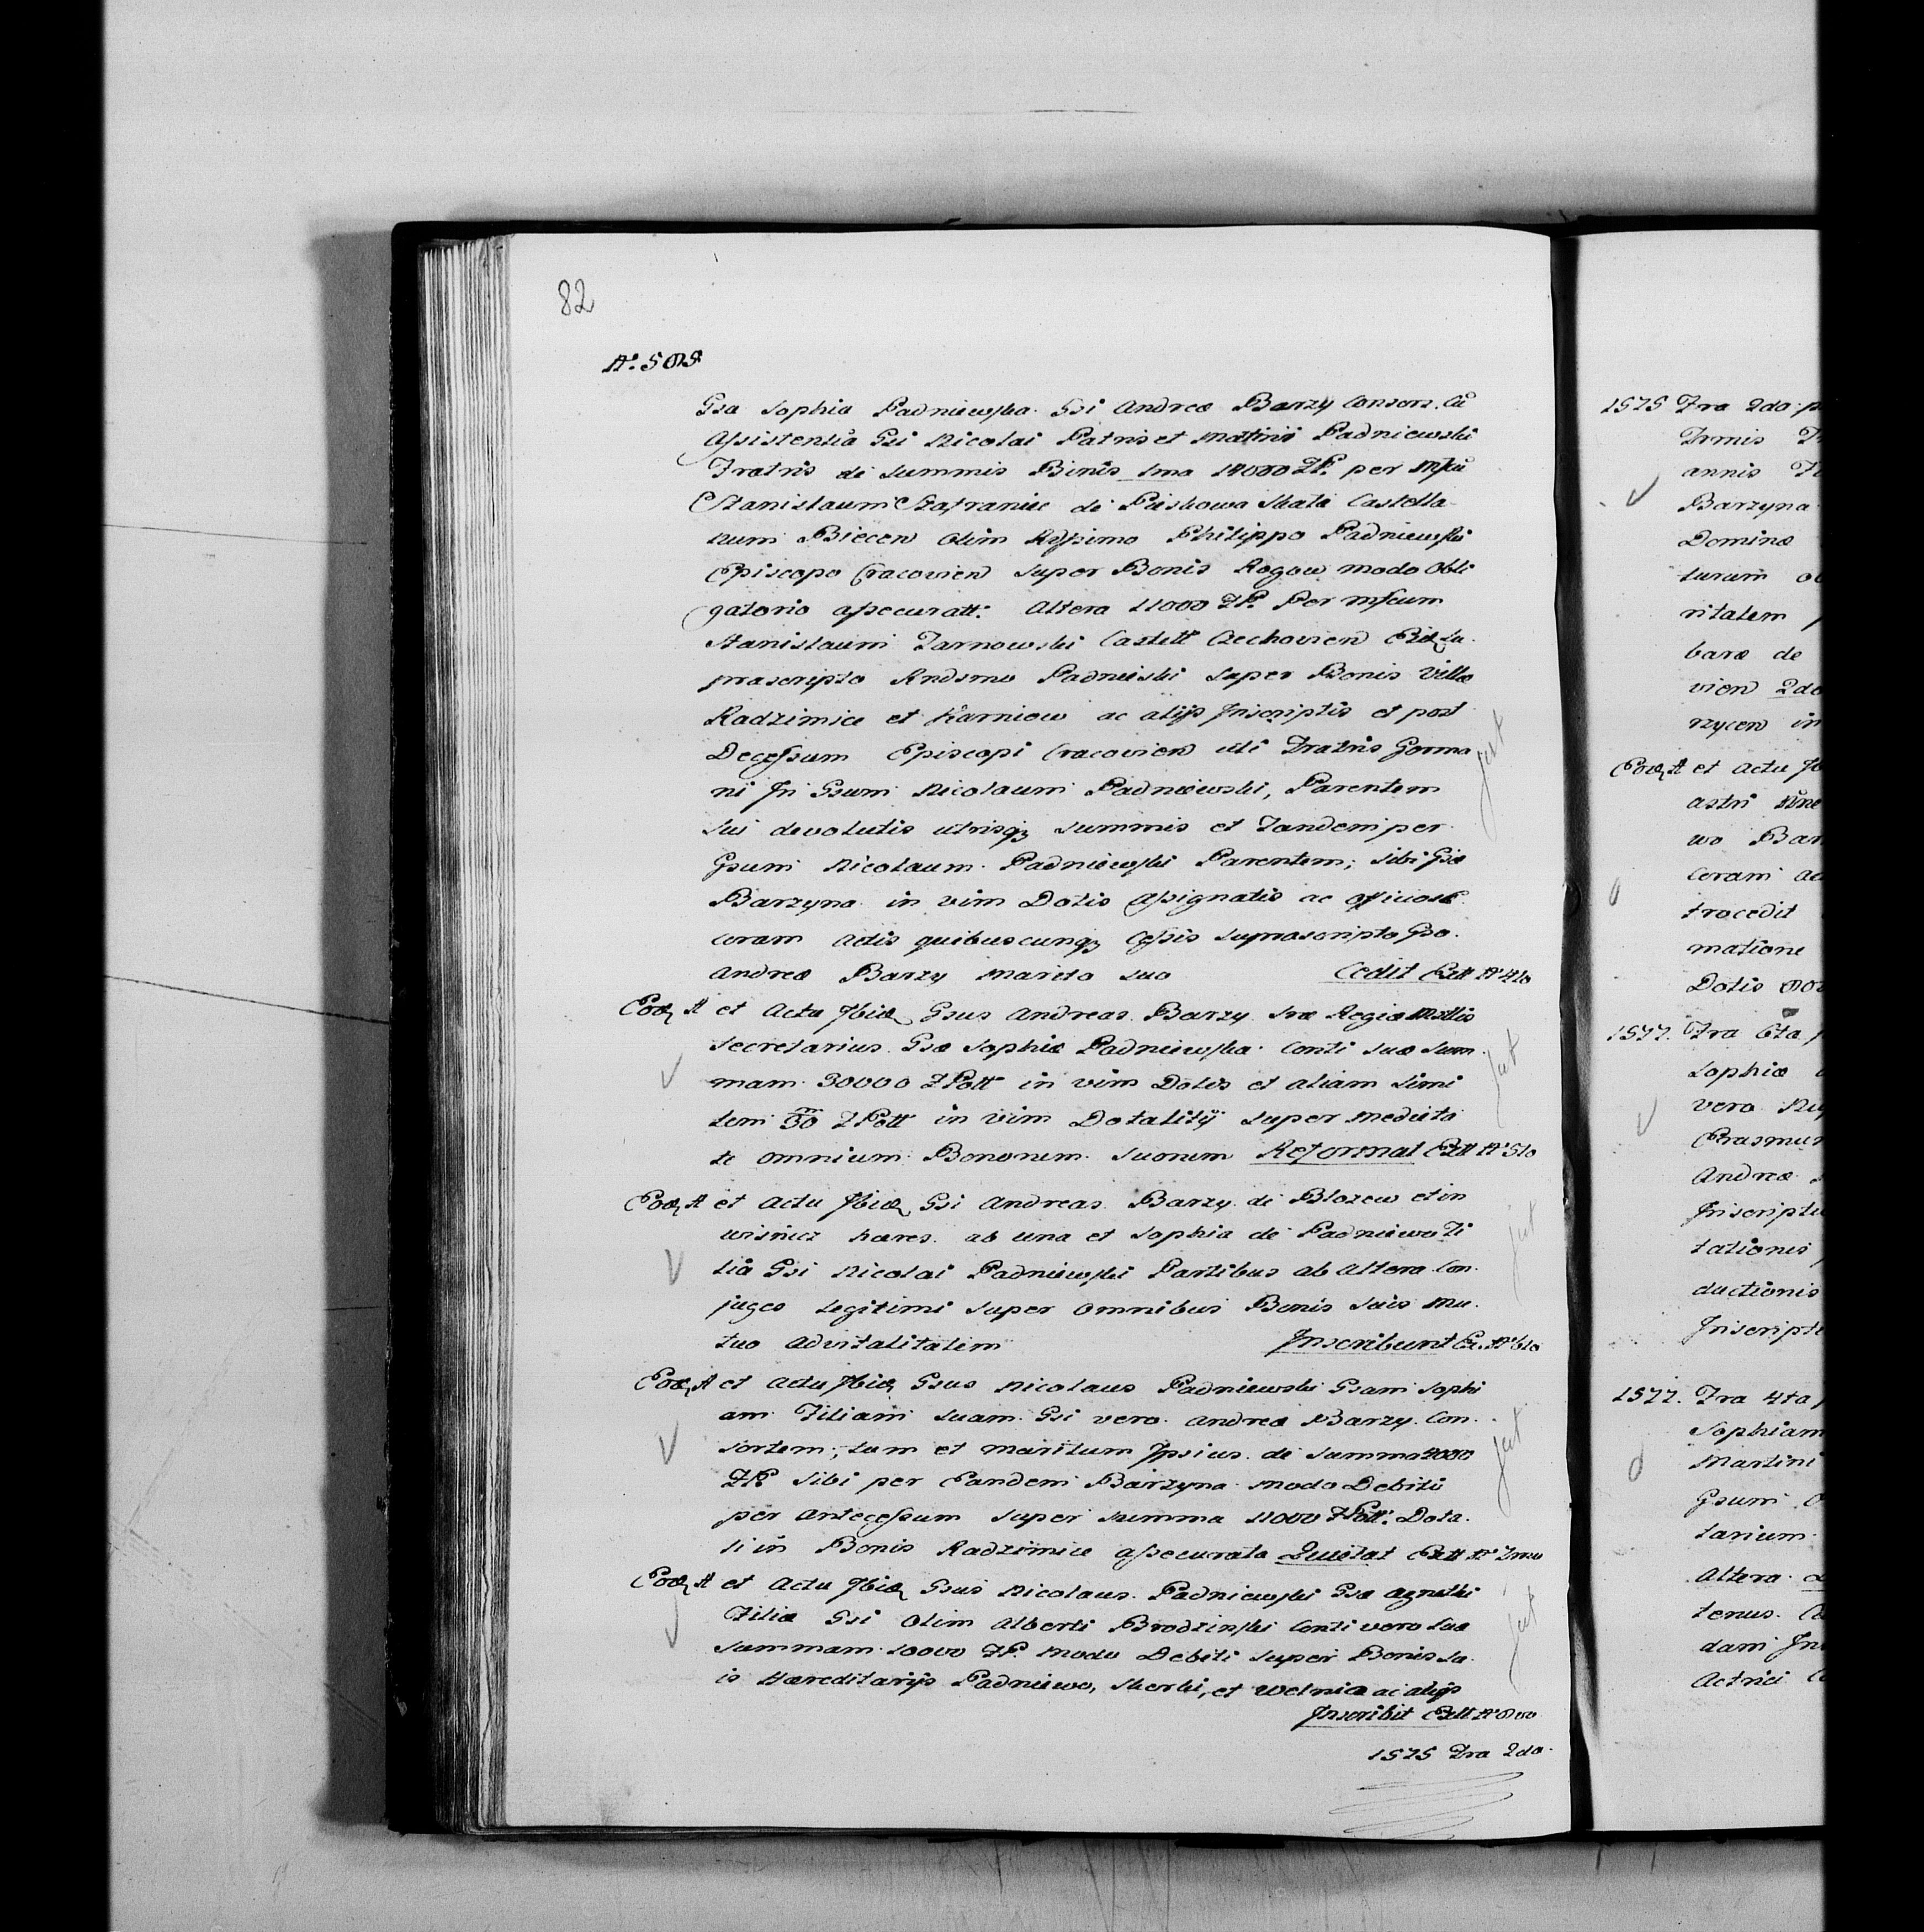 82
Gsa Sophia Padniewska Gsi Andreæ Barzy Consors. Cu
Assistentia Gsi Nicolai Patris et Padniewski
Fratris de Summis Binis 1ma 14000 ZP. per
Stanislaum Szafraniec de Pieskowa Skala Castella
num Biecen Olim Philippo Padniewski
Episcopo Cracovien Super Bonis Rogow modo Obli
gatorio assecuratt: Altera 11000 ZP. Per
Stanislaum Tarnowski Castell Czechovien
præscripto Padniewski Super Bonis Villæ
Radzimice et Karniow ac alijs Inscriptis et post
Decessum Episcopi Cracovien uti Fratris Germa
ni In Gsum Nicolaum Padniewski, Parentem
sui devolutis utrisqz Summis et Tandem per
Gsum Nicolaum Padniewski Parentem; Sibi Gsæ
Barzyna in vim Dotis Assignatis ac
coram Actis quibuscunqz Cessis Suprascripto Gso.
Andreæ Barzy Marito Suo Cedit
Eod. A et Actu Ibid Gsus Andreas Barzy Sræ Regiæ Mttis
Secretarius Gsæ Sophiæ Padniewska Conti suæ Sum
mam 30000 ZPoll in vim Dotis et aliam Simi
lem 30 m ZPoll in vim Dotalitij Super Medieta
te omnium Bonorum Suorum Reformat
Eod. A et Actu Ibid Gsi Andreas Barzy de Blozew et in
Wisnicz hæres ab una et Sophia de Padniewo Fi
lia Gsi Nicolai Padniewski Partibus ab Altera Con
juges Legitimi Super Omnibus Bonis Suis Mu
tuo Advitalitatem Inscribunt
Eod. A et Actu Ibid Gsus Nicolaus Padniewski Gsam Sophi
am Filiam Suam Gsi vero Andreæ Barzy Con
sortem, tum et Maritum Ipsius de Summa 4000
ZP. Sibi per Eandem Barzyna modo Debiti
per Antecessum Super Summa 11000 ZPoll. Dota
li in Bonis Radzimice assecurata Quietat
Eod. A et Actu Ibid Gsus Nicolaus Padniewski Gsæ
Filiæ Gsi Olim Alberti Brodzinski Conti vero Suæ
Summam 10000 ZP. Modo Debiti Super Bonis Su
is Hæreditarijs Padniewo, Skorki, et Welnica ac alijs
Inscribit
1575 Fra 2da
1575 Fra 2da
annis
Barzyna
Dominæ
turum
ritalem
baræ de
vien 2da
rzycen in
Eod. A et Actu
wo Bar
Coram
trocedit
matione
Dotis
1577. Fra 6ta
Sophiæ
vero
Erasmum
Andreæ
Inscripti
tationis
ductionis
Inscripti
1577. Fra 4ta
Sophiam
Martini
Gsum
tarium
Altera
tenus
dam
Actrici